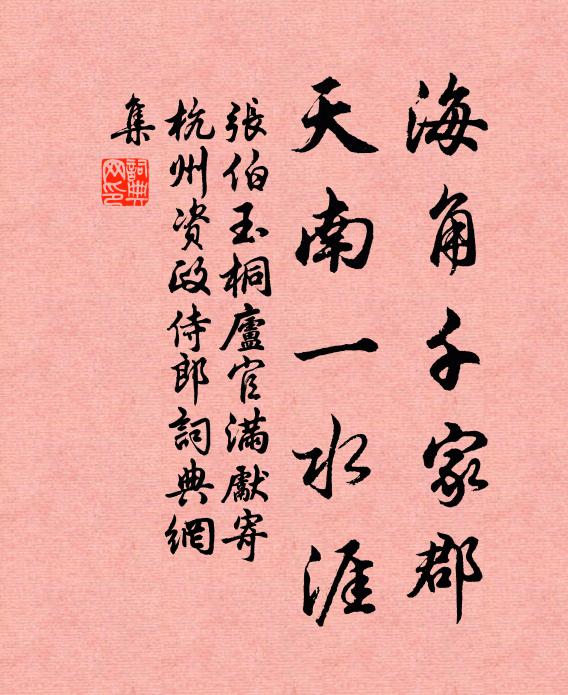 海角千家郡
天南一水涯
張伯玉桐廬官滿獻寄
杭州资政侍郎詞典網
集
詞典
网印